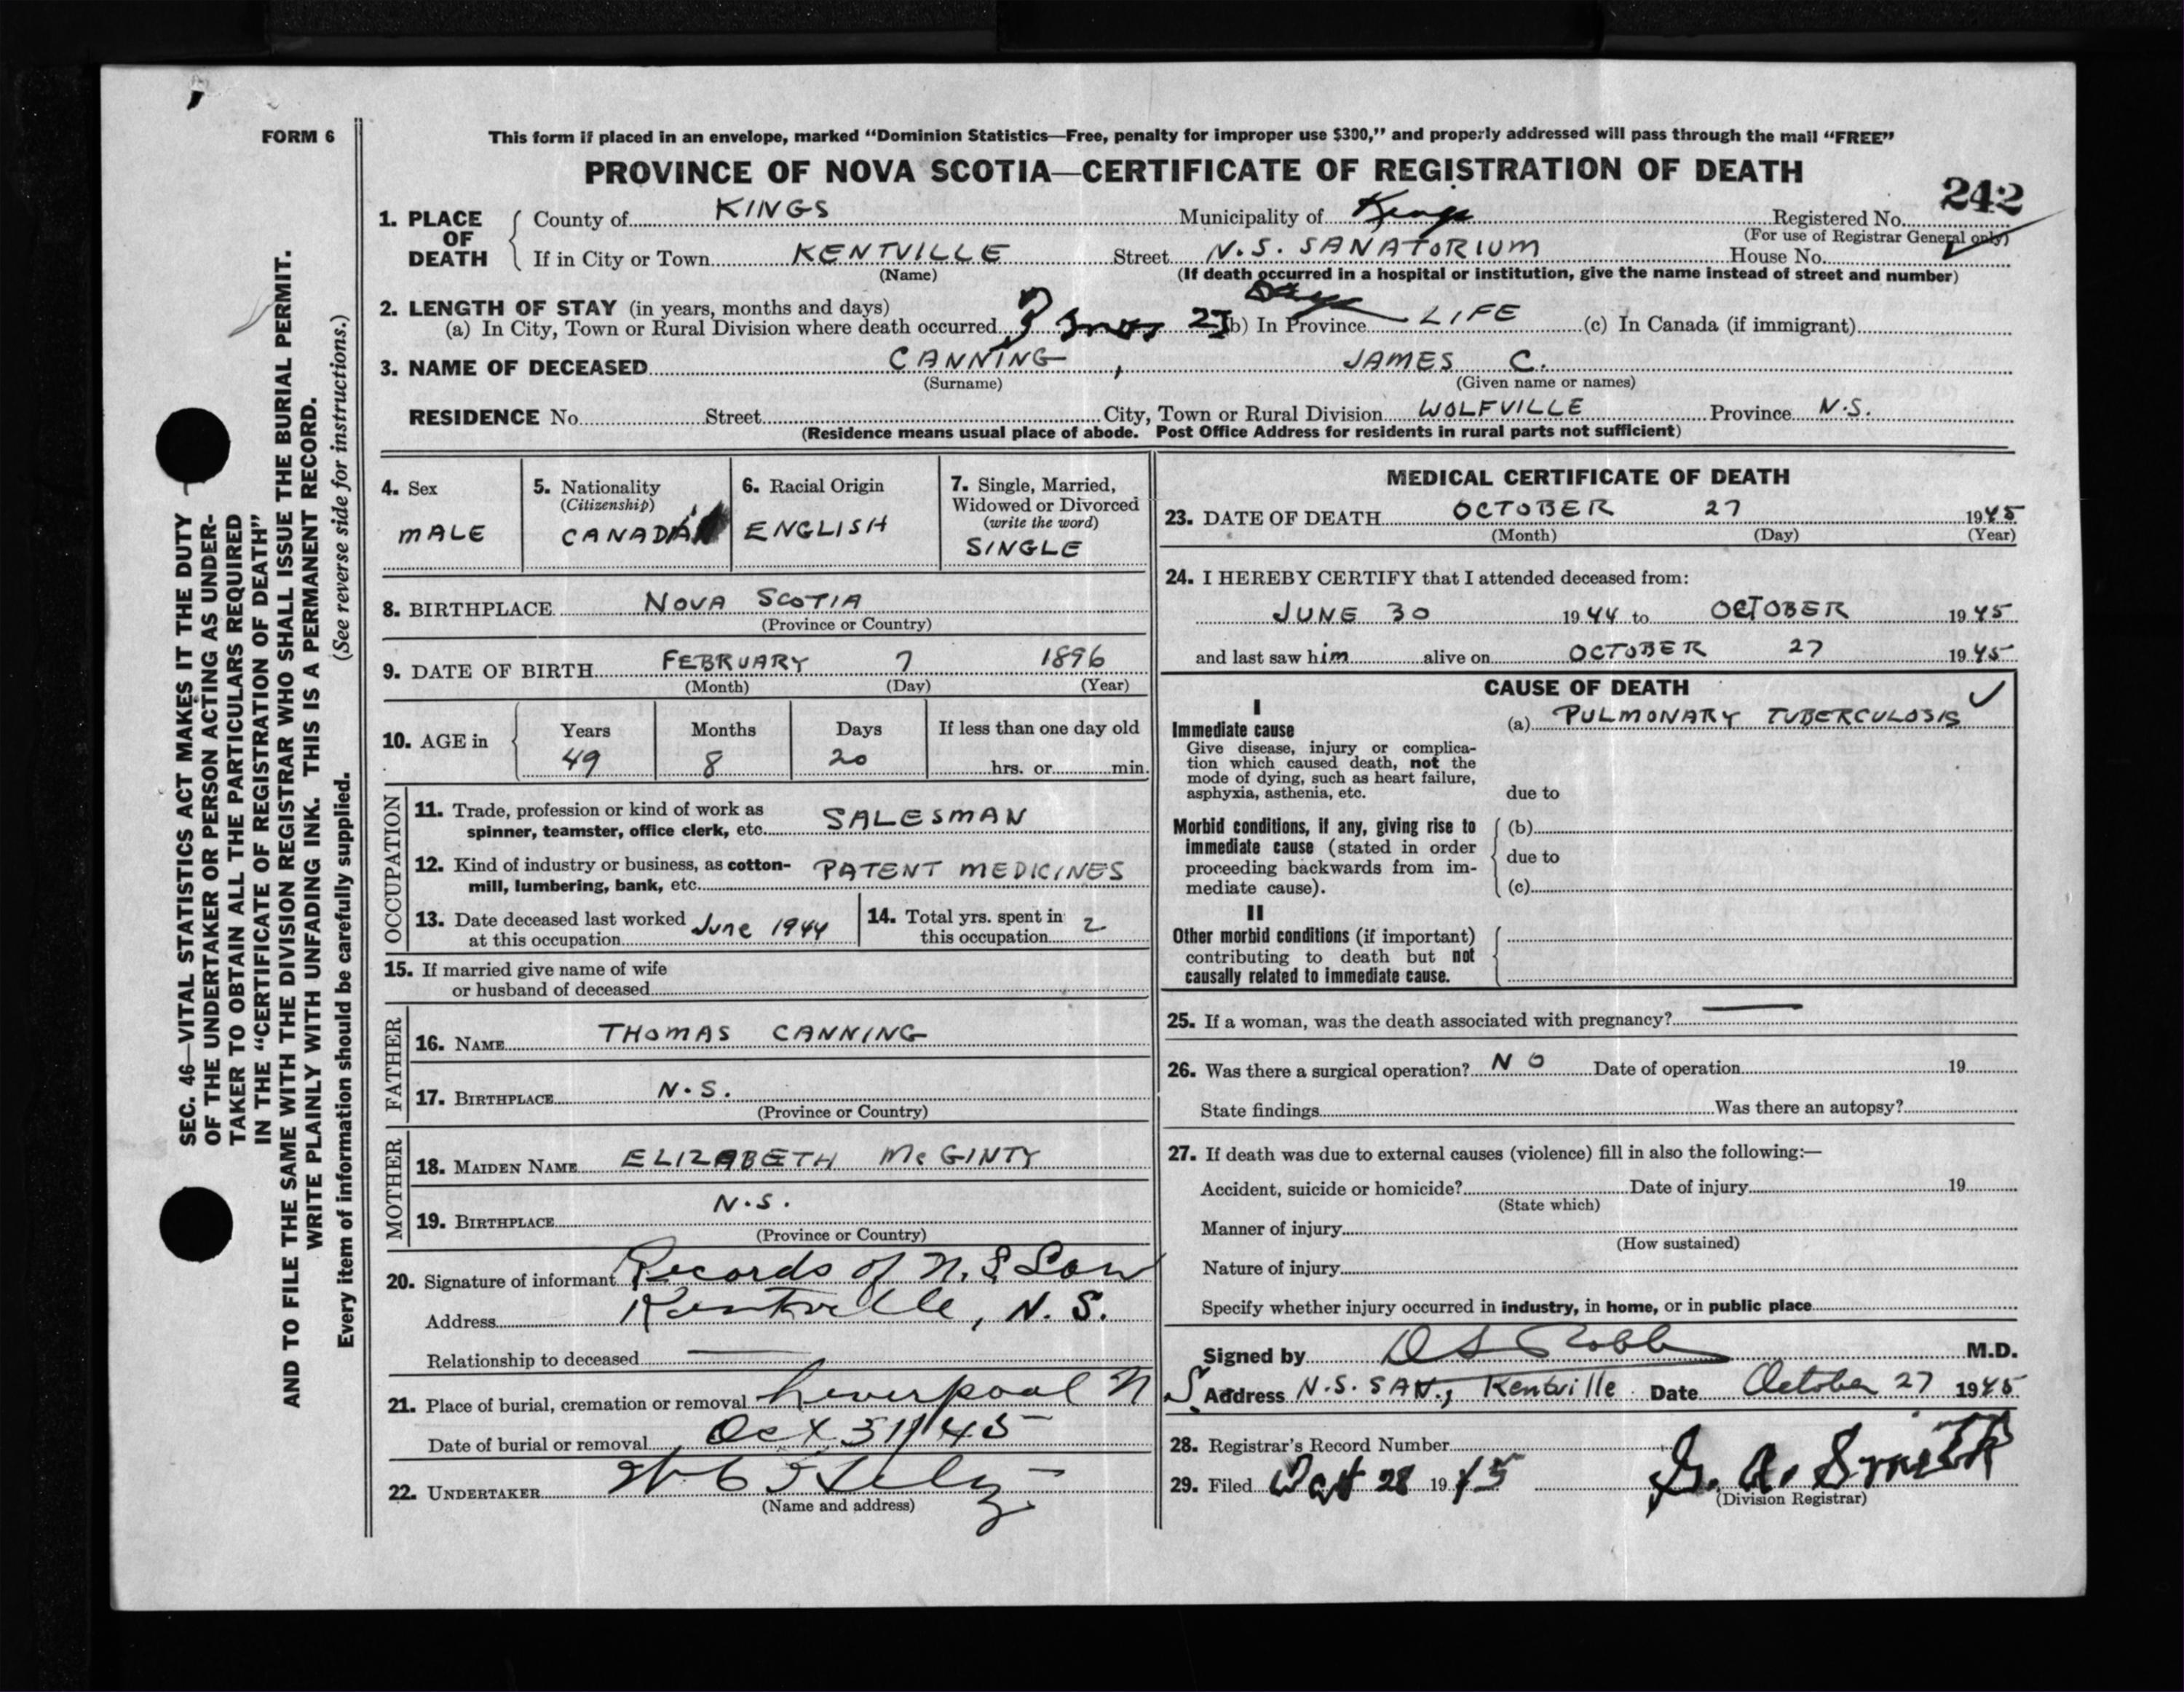 FORM 6
This form if placed in an envelope, marked "Dominion Statistics—Free, penalty for improper use $300," and properly addressed will pass through the mail "FREE"
PROVINCE OF NOVA SCOTIA—CERTIFICATE OF REGISTRATION OF DEATH
242
1. PLACE OF DEATH County of KINGS Municipality of Kings Registered No.
(For use of Registrar General only)
If in City or Town KENTVILLE Street N.S. SANATORIUM House No.
(Name) (If death occurred in a hospital or institution, give the name instead of street and number)
2. LENGTH OF STAY (in years, months and days)
(a) In City, Town or Rural Division where death occurred 3 mos 27 days (b) In Province LIFE (c) In Canada (if immigrant)
3. NAME OF DECEASED CANNING, JAMES C.
(Surname) (Given name or names)
RESIDENCE No. Street City, Town or Rural Division WOLFVILLE Province N.S.
(Residence means usual place of abode. Post Office Address for residents in rural parts not sufficient)
SEC. 46—VITAL STATISTICS ACT MAKES IT THE DUTY
OF THE UNDERTAKER OR PERSON ACTING AS UNDER-
TAKER TO OBTAIN ALL THE PARTICULARS REQUIRED
IN THE "CERTIFICATE OF REGISTRATION OF DEATH"
AND TO FILE THE SAME WITH THE DIVISION REGISTRAR WHO SHALL ISSUE THE BURIAL PERMIT.
WRITE PLAINLY WITH UNFADING INK. THIS IS A PERMANENT RECORD.
Every item of information should be carefully supplied. (See reverse side for instructions.)
4. Sex
MALE
5. Nationality
(Citizenship)
CANADA
6. Racial Origin
ENGLISH
7. Single, Married,
Widowed or Divorced
(write the word)
SINGLE
8. BIRTHPLACE NOVA SCOTIA
(Province or Country)
9. DATE OF BIRTH FEBRUARY 7 1896
(Month) (Day) (Year)
10. AGE in Years Months Days If less than one day old
49 8 20 hrs. or min.
OCCUPATION
11. Trade, profession or kind of work as
spinner, teamster, office clerk, etc. SALESMAN
12. Kind of industry or business, as cotton-
mill, lumbering, bank, etc. PATENT MEDICINES
13. Date deceased last worked
at this occupation June 1944
14. Total yrs. spent in
this occupation 2
15. If married give name of wife
or husband of deceased
FATHER
16. NAME THOMAS CANNING
17. BIRTHPLACE N.S.
(Province or Country)
MOTHER
18. MAIDEN NAME ELIZABETH McGINTY
19. BIRTHPLACE N.S.
(Province or Country)
20. Signature of informant Records of N.S. San
Address Kentville, N.S.
Relationship to deceased
21. Place of burial, cremation or removal Liverpool N S.
Date of burial or removal Oct 31/45
22. UNDERTAKER
(Name and address)
MEDICAL CERTIFICATE OF DEATH
23. DATE OF DEATH OCTOBER 27 1945
(Month) (Day) (Year)
24. I HEREBY CERTIFY that I attended deceased from:
JUNE 30 1944 to OCTOBER 1945
and last saw him alive on OCTOBER 27 1945
CAUSE OF DEATH
I
Immediate cause
Give disease, injury or complica-
tion which caused death, not the
mode of dying, such as heart failure,
asphyxia, asthenia, etc.
(a) PULMONARY TUBERCULOSIS
due to
Morbid conditions, if any, giving rise to
immediate cause (stated in order
proceeding backwards from im-
mediate cause).
(b)
due to
(c)
II
Other morbid conditions (if important)
contributing to death but not
causally related to immediate cause.
25. If a woman, was the death associated with pregnancy?
26. Was there a surgical operation? NO Date of operation 19
State findings Was there an autopsy?
27. If death was due to external causes (violence) fill in also the following:—
Accident, suicide or homicide? Date of injury 19
(State which)
Manner of injury
(How sustained)
Nature of injury
Specify whether injury occurred in industry, in home, or in public place
Signed by D S Robb M.D.
Address N.S. SAN., Kentville Date October 27 1945
28. Registrar's Record Number
29. Filed Oct 28 1945 G. A. Smith
(Division Registrar)